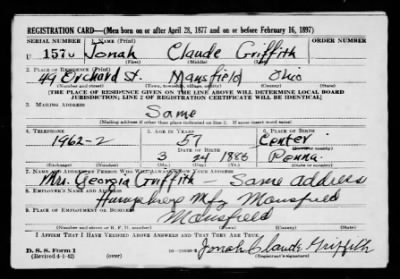 REGISTRATION CARD—(Men born on or after April 28, 1877 and on or before February 16, 1897)
SERIAL NUMBER 1. NAME (Print) ORDER NUMBER
U 1570 Jonah Claude Griffith
(First) (Middle) (Last)
2. PLACE OF RESIDENCE (Print)
49 Orchard St. Mansfield Ohio
(Number and street) (Town, township, village, or city) (County) (State)
[THE PLACE OF RESIDENCE GIVEN ON THE LINE ABOVE WILL DETERMINE LOCAL BOARD
JURISDICTION; LINE 2 OF REGISTRATION CERTIFICATE WILL BE IDENTICAL]
3. MAILING ADDRESS
Same
[Mailing address if other than place indicated on line 2. If same, insert word same]
4. TELEPHONE 5. AGE IN YEARS 6. PLACE OF BIRTH
1962-2 57 Center
DATE OF BIRTH (Town or county)
3 24 1885 Penna.
(Exchange) (Number) (Mo.) (Day) (Yr.) (State or country)
7. NAME AND ADDRESS OF PERSON WHO WILL ALWAYS KNOW YOUR ADDRESS
Mrs. Georgia Griffith – Same address
8. EMPLOYER'S NAME AND ADDRESS
Mfg Mansfield
9. PLACE OF EMPLOYMENT OR BUSINESS
Mansfield
(Number and street or R. F. D. number) (Town) (County) (State)
I AFFIRM THAT I HAVE VERIFIED ABOVE ANSWERS AND THAT THEY ARE TRUE.
D. S. S. Form 1
(Revised 4-1-42) Jonah Claude Griffith